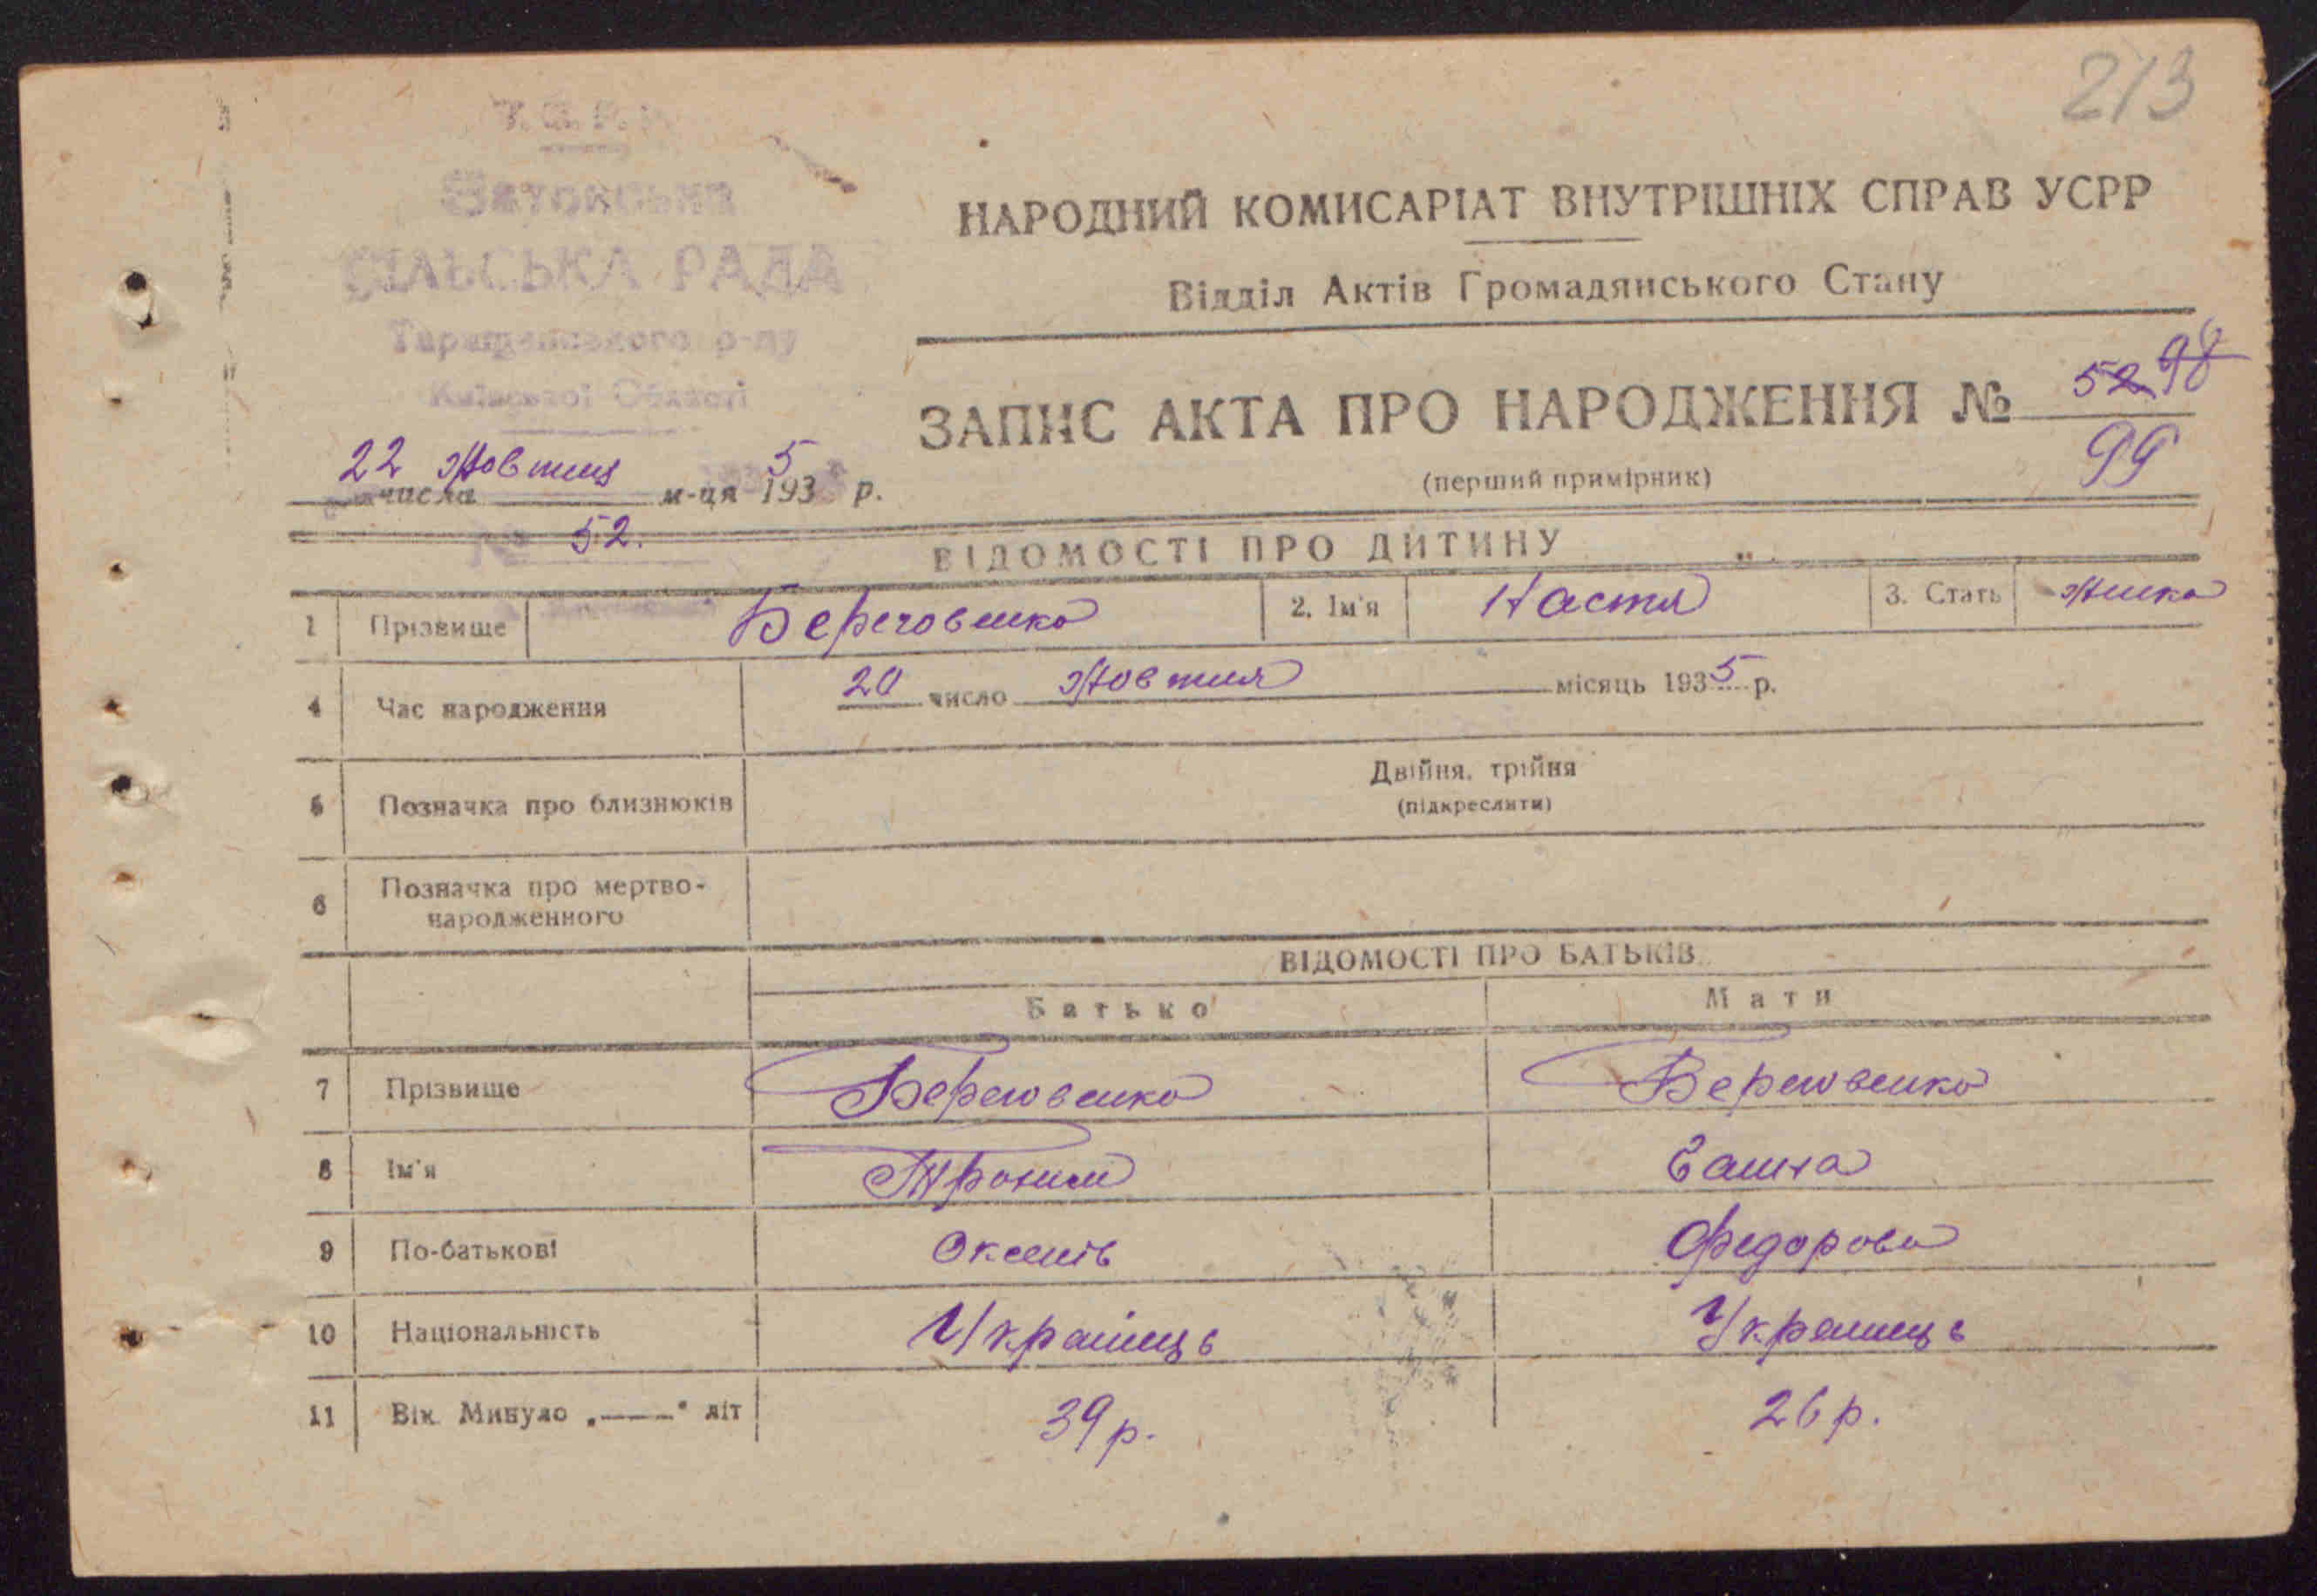 213
У. С. Р. Р.
СІЛЬСЬКА РАДА
Таращанського р-ну
Київської Області
НАРОДНИЙ КОМИСАРІАТ ВНУТРІШНІХ СПРАВ УСРР
Відділ Актів Громадянського Стану
ЗАПИС АКТА ПРО НАРОДЖЕННЯ № 52 98
99
(перший примірник)
22 числа Жовтня м-ця 1935 р.
№ 52.
ВІДОМОСТІ ПРО ДИТИНУ
1 Прізвище Береговенко 2. Ім'я Настя 3. Стать жінка
4 Час народження 20 число Жовтня місяць 1935 р.
5 Позначка про близнюків Двійня, трійня
(підкреслити)
6 Позначка про мертво-
народженного
ВІДОМОСТІ ПРО БАТЬКІВ
Батько Мати
7 Прізвище Береговенко Береговенко
8 Ім'я Трохим Ганна
9 По-батькові Оксенів Федорова
10 Національність Українець Українець
11 Вік. Минуло „——" літ 39 р. 26 р.